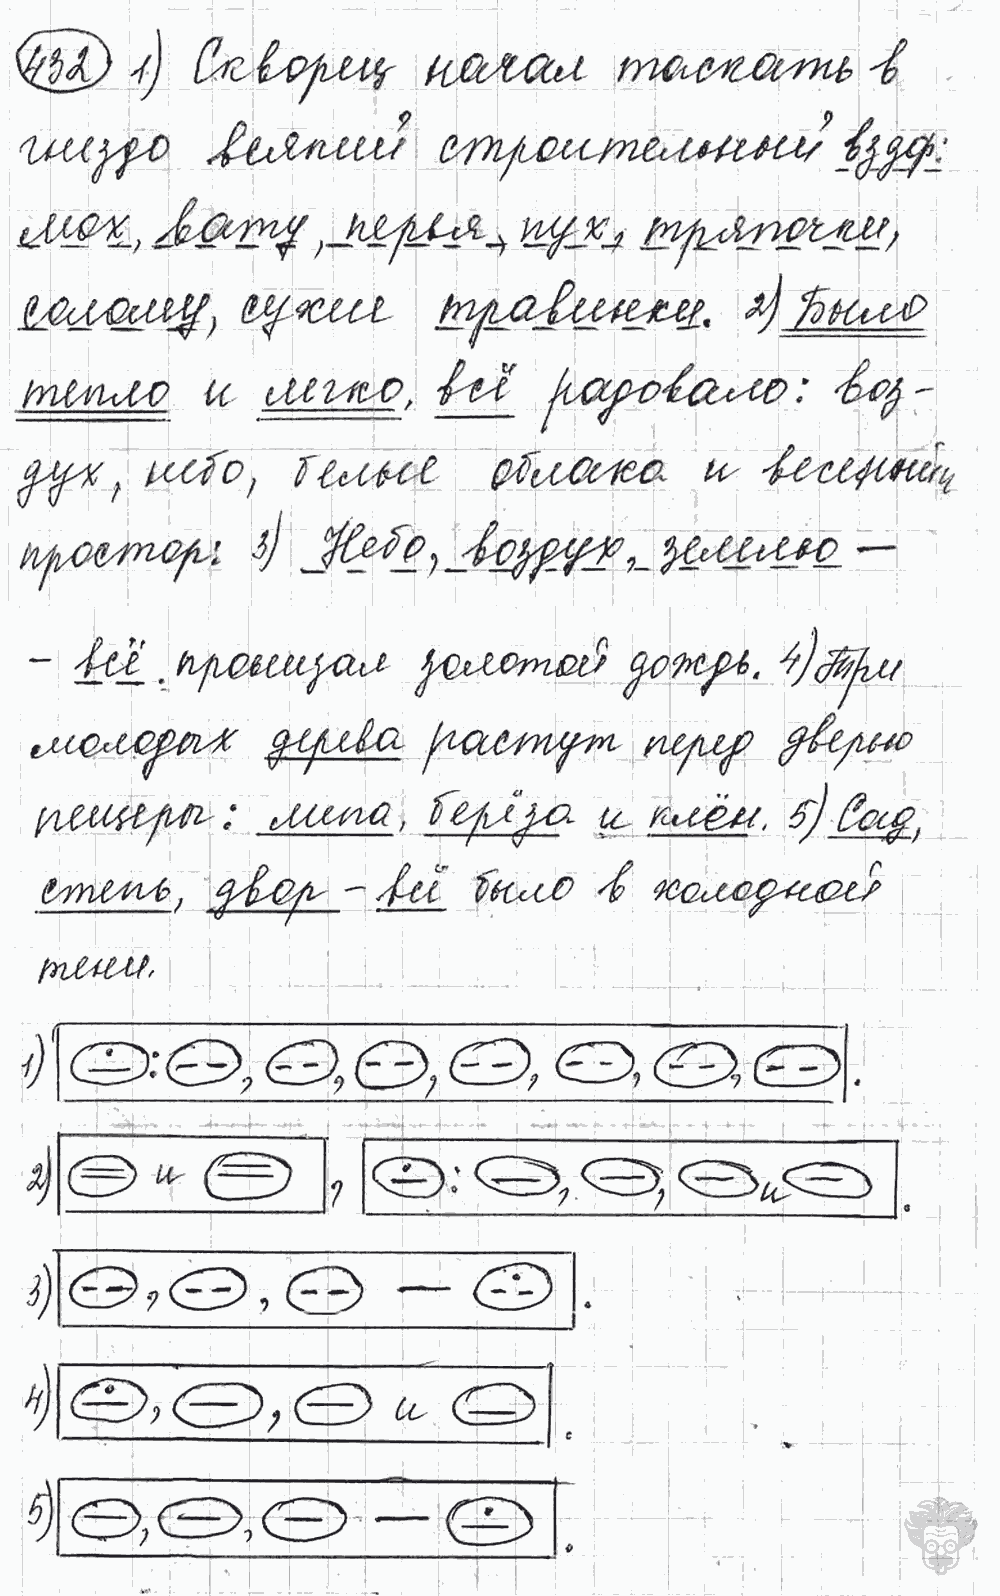 432 1) Скворец начал таскать в
гнездо всякий строительный вздор:
мох, вату, перья, пух, тряпочки,
солому, сухие травинки. 2) Было
тепло и легко, всё радовало: воз-
дух, небо, белые облака и весенний
простор: 3) Небо, воздух, землю —
- всё пронизал золотой дождь. 4) Три
молодых дерева растут перед дверью
пещеры: липа, берёза и клён. 5) Сад,
степь, двор - всё было в холодной
тени.
1) : , , , , , , .
2) и , : , , и .
3) , , — .
4) , , и .
5) , , — .